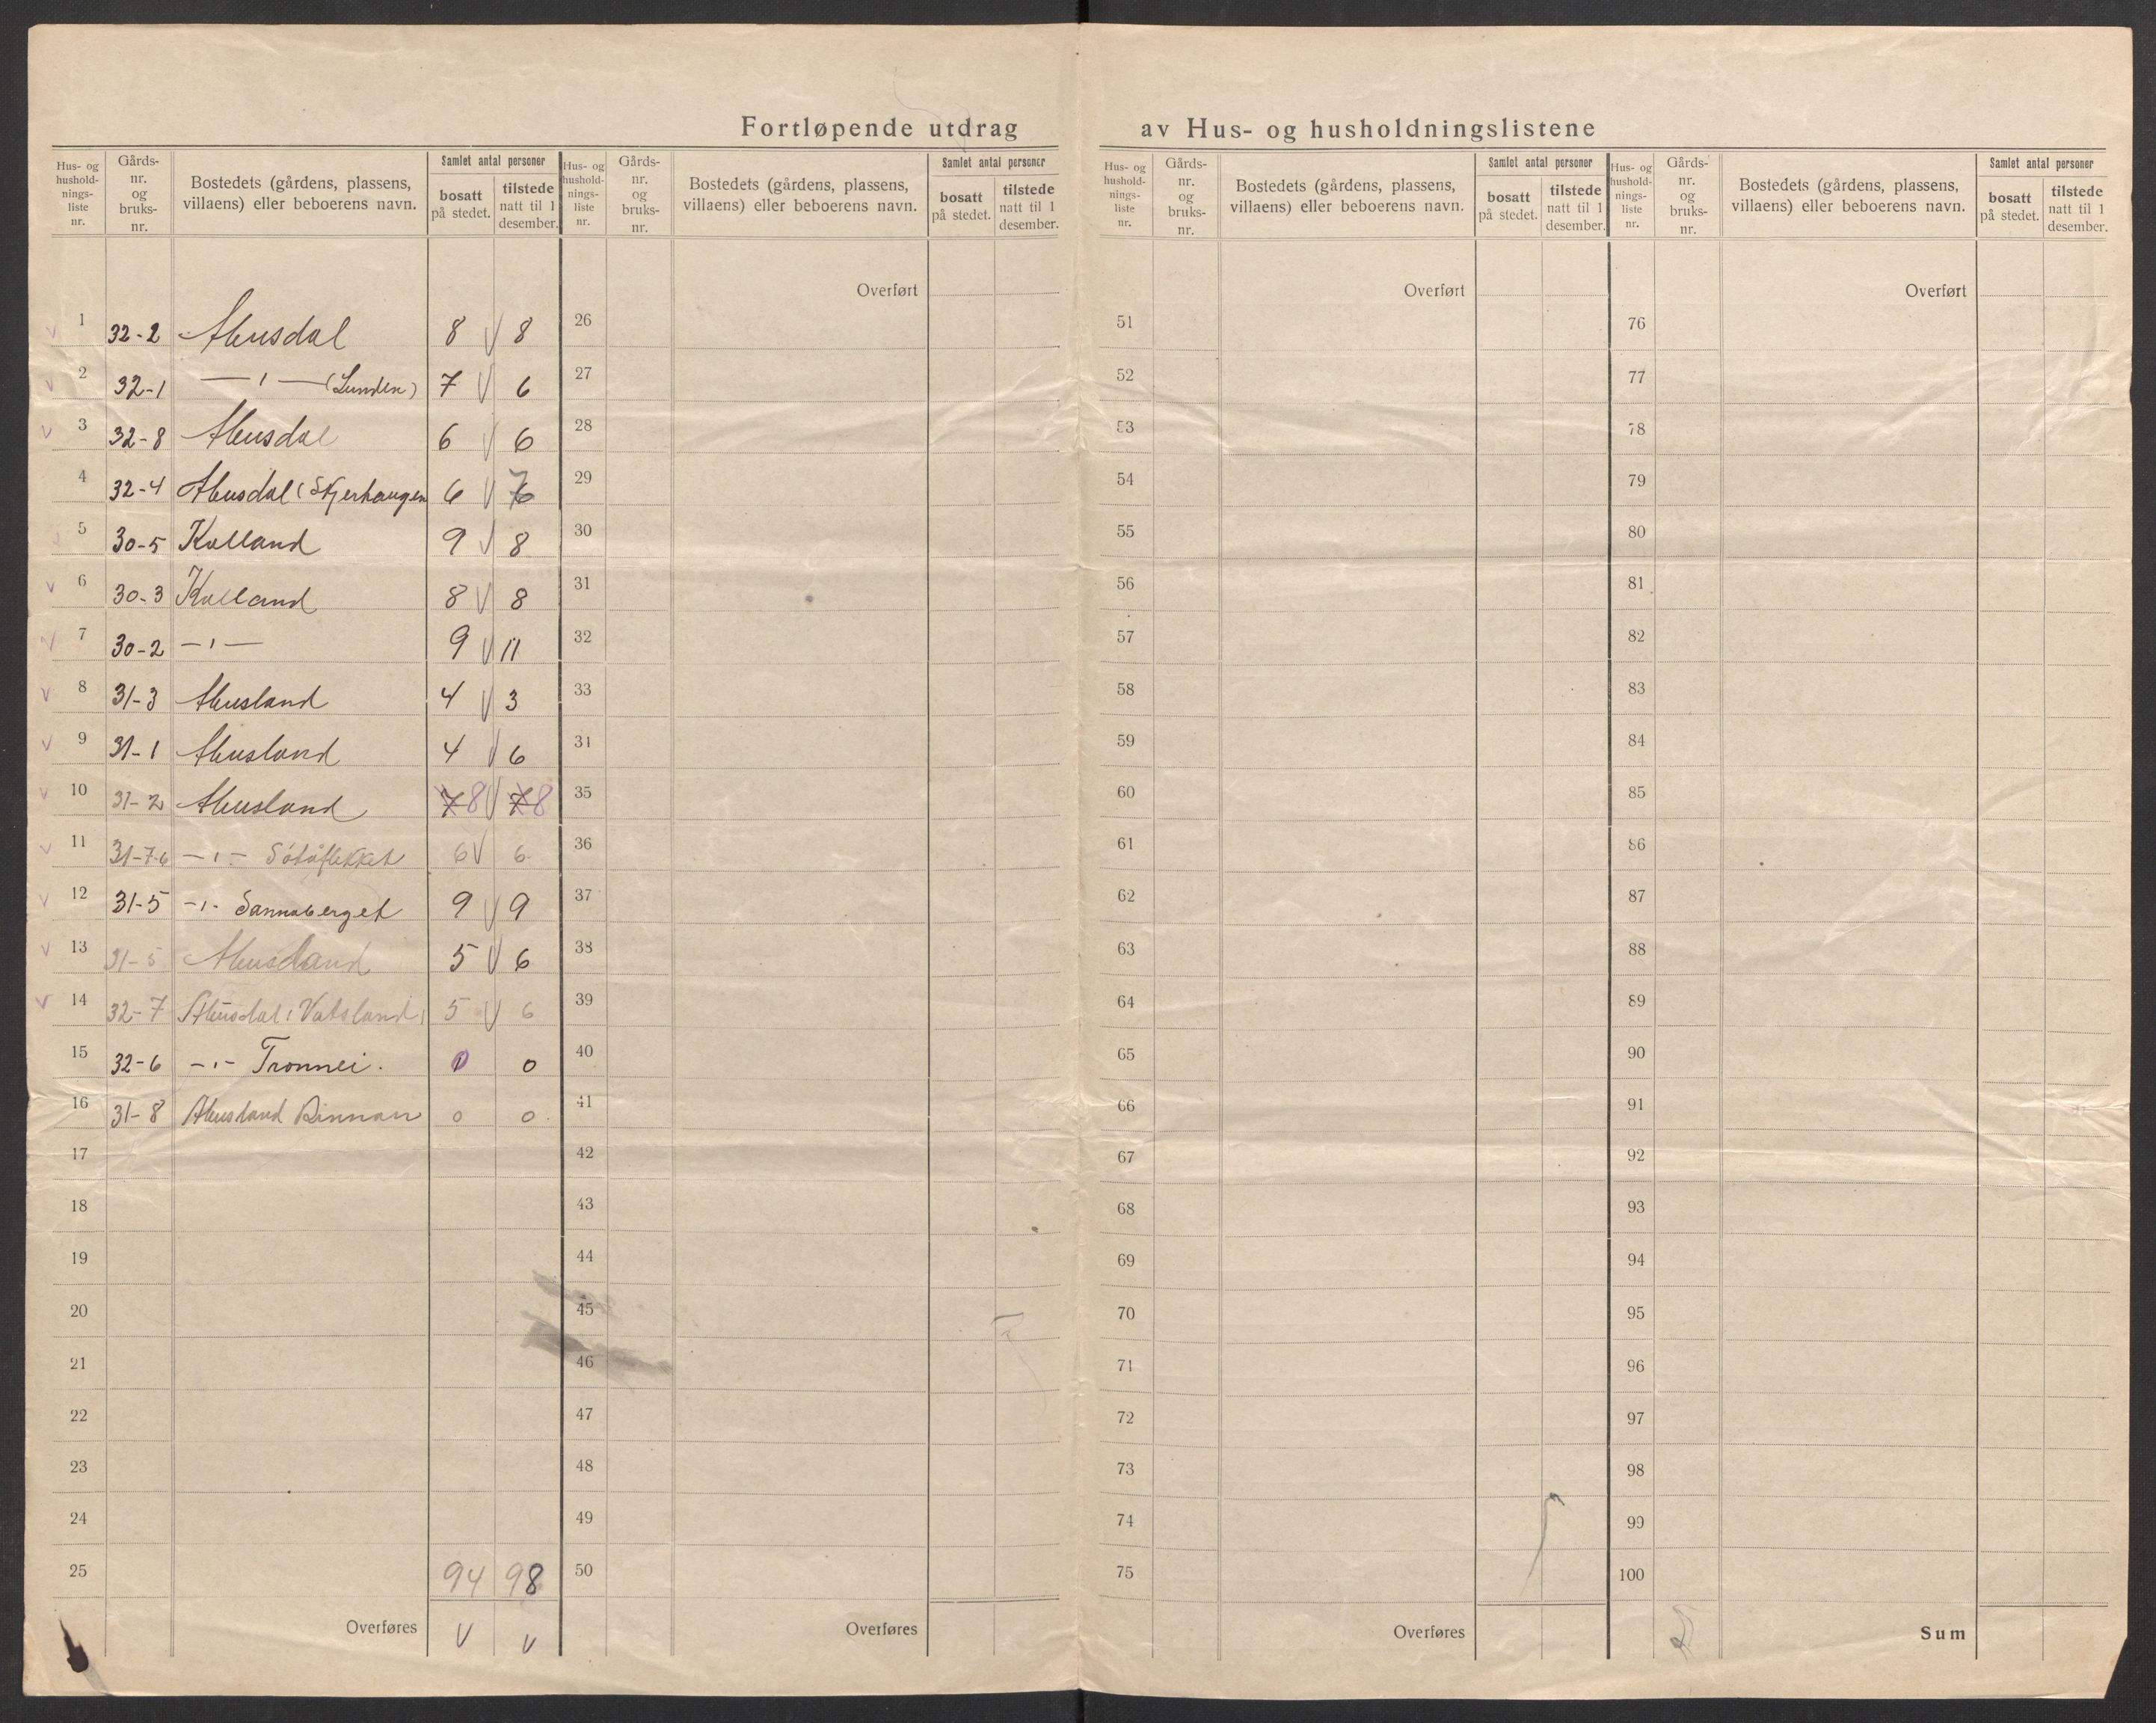 Fortløpende utdrag av Hus- og husholdningslistene
Hus- og husholdnings-liste nr. Gårds-nr. og bruks-nr. Bostedets (gårdens, plassens, villaens) eller beboerens navn. Samlet antal personer bosatt på stedet. tilstede natt til 1 desember.
Hus- og hushold-nings-liste nr. Gårds-nr. og bruks-nr. Bostedets (gårdens, plassens, villaens) eller beboerens navn. Samlet antal personer bosatt på stedet. tilstede natt til 1 desember.
Hus- og hushold-nings-liste nr. Gårds-nr. og bruks-nr. Bostedets (gårdens, plassens, villaens) eller beboerens navn. Samlet antal personer bosatt på stedet. tilstede natt til 1 desember.
Hus- og hushold-nings-liste nr. Gårds-nr. og bruks-nr. Bostedets (gårdens, plassens, villaens) eller beboerens navn. Samlet antal personer bosatt på stedet. tilstede natt til 1 desember.
Overført Overført Overført
1 32-2 Abusdal 8 V 8 26 51 76
2 32-1 — ı — (Lunden) 7 V 6 27 52 77
3 32-8 Abusdal 6 V 6 28 53 78
4 32-4 Abusdal (Skjerhaugen 6 V 7 29 54 79
5 30-5 Kolland 9 V 8 30 55 80
6 30-3 Kolland 8 V 8 31 56 81
7 30-2 — ı — 9 V 11 32 57 82
8 31-3 Abusland 4 V 3 33 58 83
9 31-1 Abusland 4 V 6 31 59 84
10 31-2 Abusland 7 8 V 7 8 35 60 85
11 31-7-6 — ı — 6 V 6 36 61 86
12 31-5 -ı- Sannaberget 9 V 9 37 62 87
13 31-5 Abusland 5 V 6 38 63 88
14 32-7 Abusdal (Vatsland) 5 V 6 39 64 89
15 32-6 -ı- Tronnei. 0 0 40 65 90
16 31-8 Abusland Rinnan 0 0 41 66 91
17 42 67 92
18 43 68 93
19 44 69 94
20 45 70 95
21 46 71 96
22 47 72 97
23 48 73 98
24 49 74 99
25 94 98 50 75 100
Overføres V V Overføres Overføres Sum